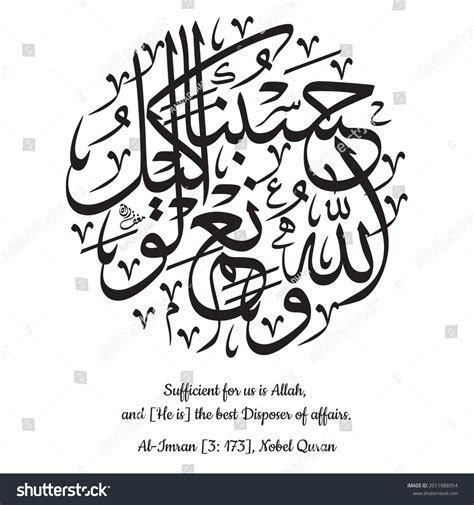 حسبنا الله ونعم الوكيل
Sufficient for us is Allah,
and [He is] the best Disposer of affairs.
Al-Imran [3: 173], Nobel Quran
shutterstock
IMAGE ID: 2011988954
www.shutterstock.com